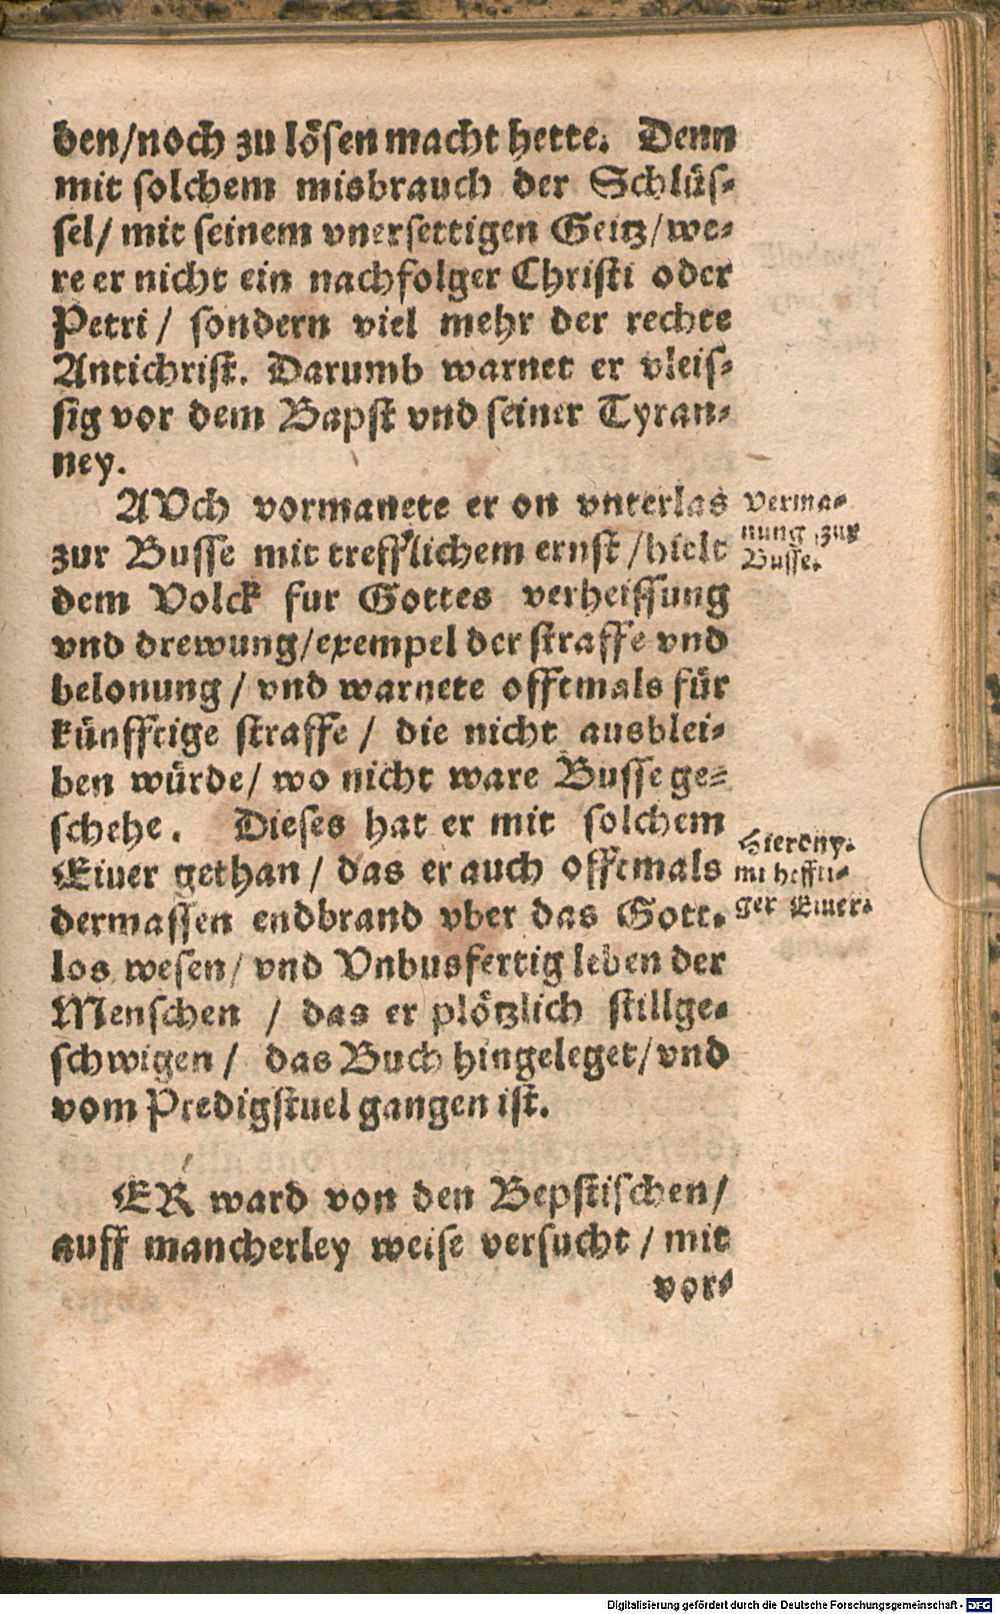 den/noch zu lösen macht hette. Denn
mit solchem misbrauch der Schlüs-
sel/ mit seinem vnersettigen Geitz/we-
re er nicht ein nachfolger Christi oder
Petri/ sondern viel mehr der rechte
Antichrist. Darumb warnet er vleis-
sig vor dem Bapst vnd seiner Tyran-
ney.
AVch vormanete er on vnterlas
zur Busse mit trefflichem ernst/hielt
dem Volck fur Gottes verheissung
vnd drewung/exempel der straffe vnd
belonung/ vnd warnete offtmals für
künfftige straffe/ die nicht ausblei-
ben würde/ wo nicht ware Busse ge-
schehe. Dieses hat er mit solchem
Eiuer gethan/ das er auch offtmals
dermassen endbrand vber das Gott-
los wesen/ vnd Vnbusfertig leben der
Menschen / das er plötzlich stillge-
schwigen/ das Buch hingeleget/vnd
vom Predigstuel gangen ist.
ER ward von den Bepstischen/
auff mancherley weise versucht/ mit
vor-
Verma-
nung zur
Busse.
Hierony-
mi heffti-
ger Eiuer.
Digitalisierung gefördert durch die Deutsche Forschungsgemeinschaft - DFG